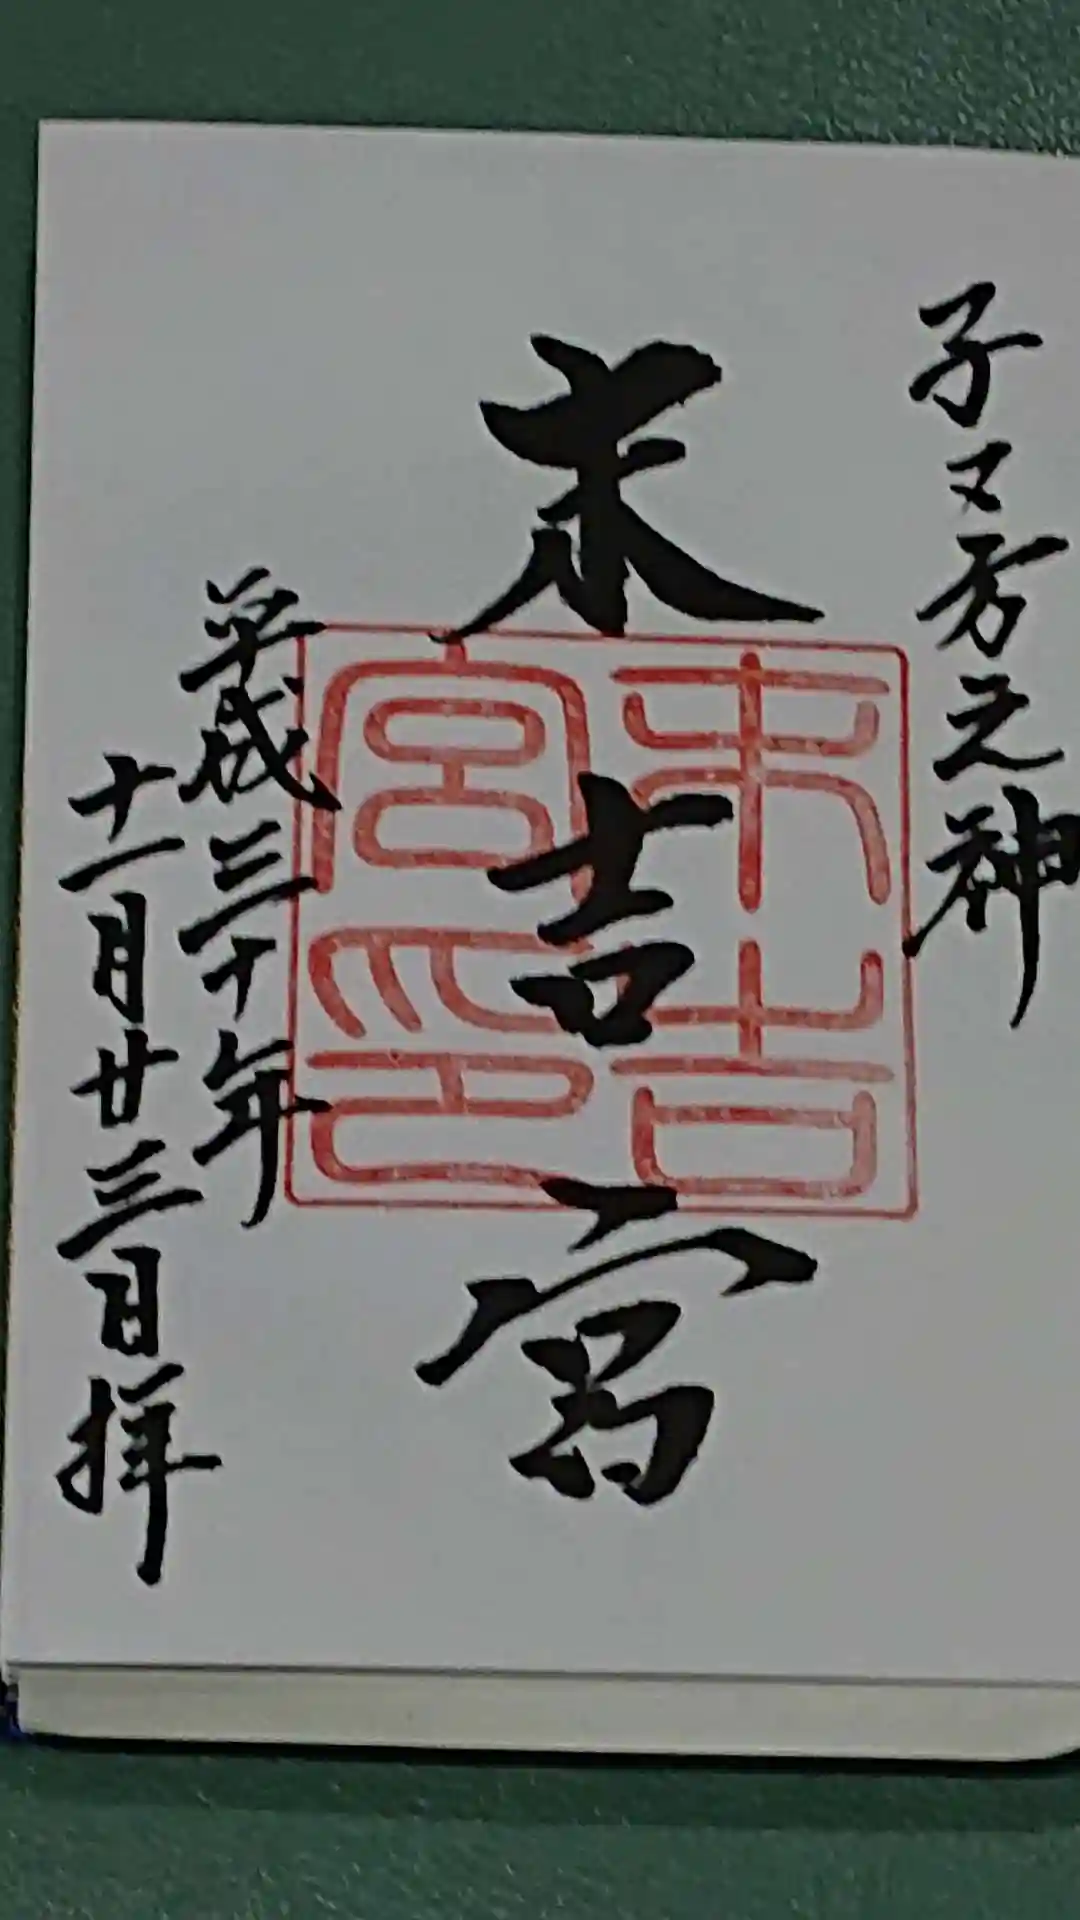 子ヌ方元神
末吉宮
末吉
宮印
平成三十年
十一月廿三日拝